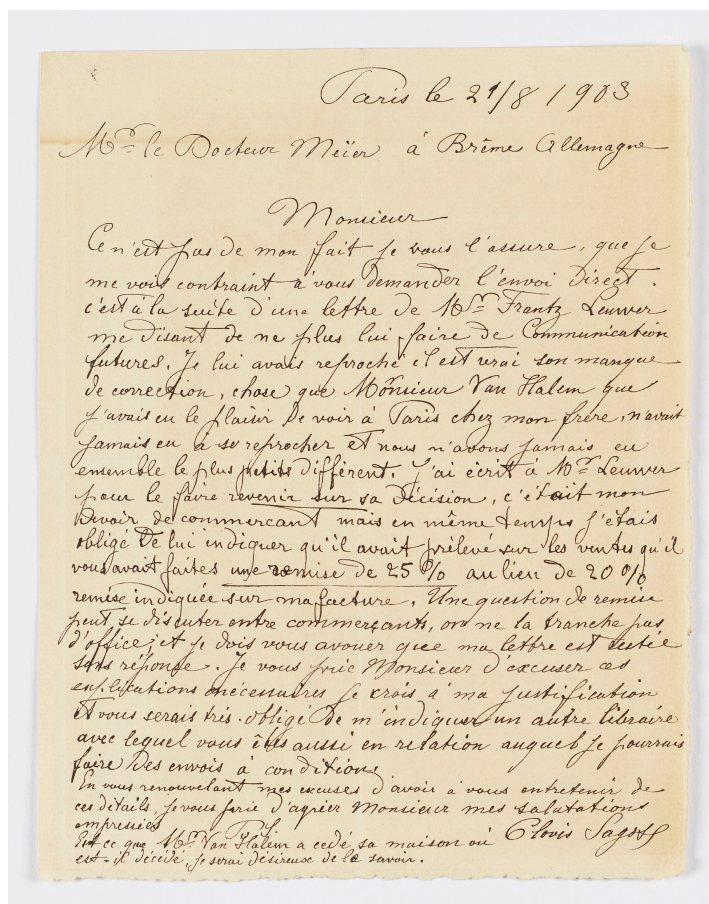 Paris le 21/8/1903
Mr. le Docteur Meïer à Brême Allemagne
Monsieur
Ce n'est pas de mon fait je vous l'assure, que je
me vois contraint à vous demander l'envoi direct.
c'est à la suite d'une lettre de Mr Frantz Leuwer
me disant de ne plus lui faire de Communication
futures. Je lui avais reproché il est vrai son manque
de correction, chose que Monsieur Van Halem que
j'avais eu le plaisir de voir à Paris chez mon frère, n'avait
jamais eu à se reprocher et nous n'avons jamais eu
ensemble le plus petits différent. J'ai écrit à Mr Leuwer
pour le faire revenir sur sa décision, c'était mon
Devoir de commercant mais en même temps j'étais
obligé de lui indiquer qu'il avait prélevé sur les ventes qu'il
vous avait faites une remise de 25% au lieu de 20%
remise indiquée sur ma facture. Une question de remise
peut se discuter entre commerçants, on ne la tranche pas
d'office, et je dois vous avouer que ma lettre est restée
sans réponse. Je vous prie Monsieur d'excuser ces
explications nécessaires je crois à ma justification
et vous serais très obligé de m'indiquer un autre libraire
avec lequel vous êtes aussi en relation auquel je pourrais
faire des envois à condition.
En vous renouvelant mes excuses d'avoir à vous entretenir de
ces détails, je vous prie d'agréer Monsieur mes salutations
empressées
Est ce que Mr. Van Halem a cédé sa maison ou Clovis Sagot
est-il décédé, je serai désireux de le savoir.